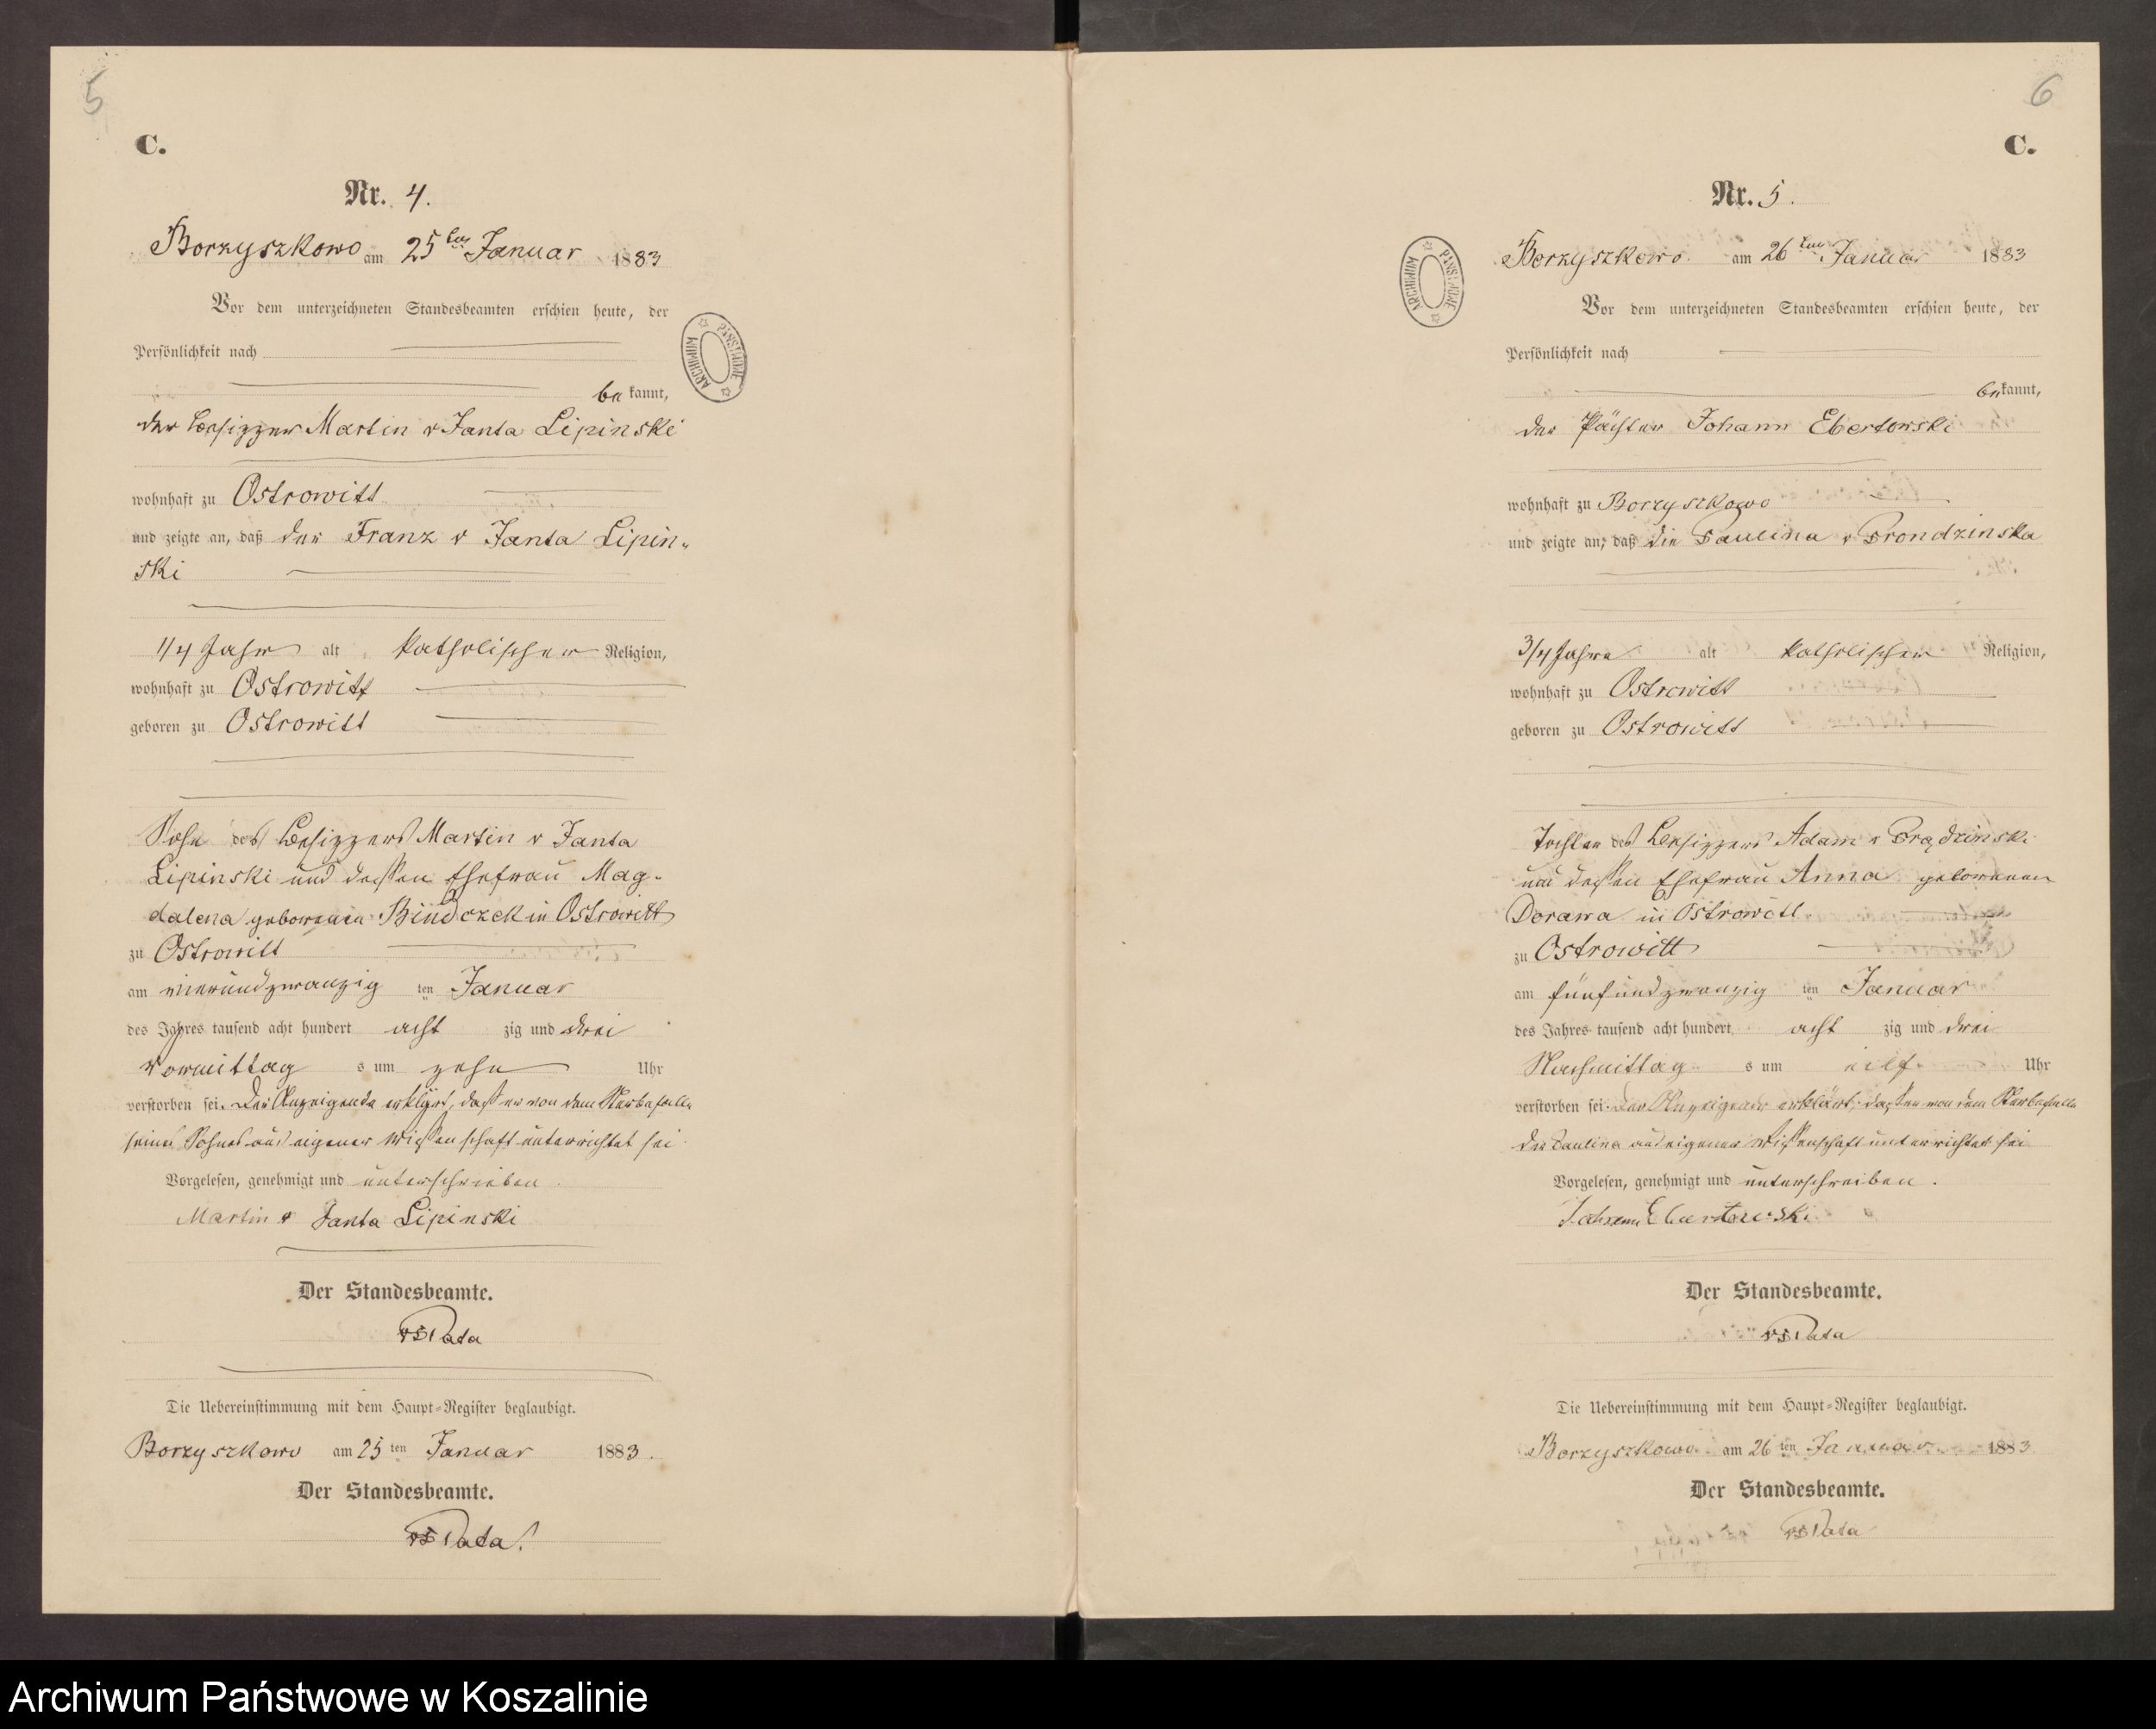 5
C.
Nr. 4.
Borzyszkowo am 25ten Januar 1883
Vor dem unterzeichneten Standesbeamten erschien heute, der
Persönlichkeit nach
be kannt,
der Besizzer Martin v Janta Lipinski
wohnhaft zu Ostrowitt
und zeigte an, daß der Franz v Janta Lipin-
ski
1/4 Jahr alt katholischer Religion,
wohnhaft zu Ostrowitt
geboren zu Ostrowitt
Sohn des Besizzers Martin v Janta
Lipinski und dessen Ehefrau Mag-
dalena geborenen in Ostrowitt
zu Ostrowitt
am vierundzwanzig ten Januar
des Jahres tausend acht hundert acht zig und drei
Vormittag s um zehn Uhr
verstorben sei. Der Anzeigende erklärt, daß er von dem Sterbefalle
seines Sohnes aus eigener Wissenschaft unterrichtet sei
Vorgelesen, genehmigt und unterschrieben
Martin v Janta Lipinski
Der Standesbeamte.
Die Uebereinstimmung mit dem Haupt-Register beglaubigt.
Borzyszkowo am 25 ten Januar 1883.
Der Standesbeamte.
ARCHIWUM PAŃSTWOWE
6
C.
Nr. 5.
Borzyszkowo am 26ten Januar 1883
Vor dem unterzeichneten Standesbeamten erschien heute, der
Persönlichkeit nach
be kannt,
der Pächter Johann Ebertowski
wohnhaft zu Borzyszkowo
und zeigte an, daß die Paulina v Prondzinska
3/4 Jahre alt katholischer Religion,
wohnhaft zu Ostrowitt
geboren zu Ostrowitt
Tochter des Besizzers Adam v Prądzinski
und dessen Ehefrau Anna geborenen
Dorawa in Ostrowitt
zu Ostrowitt
am fünfundzwanzig ten Januar
des Jahres tausend acht hundert acht zig und drei
Nachmittag s um eilf Uhr
verstorben sei. Der Anzeigende erklärt, daß er von dem Sterbefalle
der Paulina aus eigener Wissenschaft unterrichtet sei
Vorgelesen, genehmigt und unterschreiben.
Johann Ebertowski
Der Standesbeamte.
Die Uebereinstimmung mit dem Haupt-Register beglaubigt.
Borzyszkowo am 26 ten Januar 1883
Der Standesbeamte.
ARCHIWUM PAŃSTWOWE
Archiwum Państwowe w Koszalinie